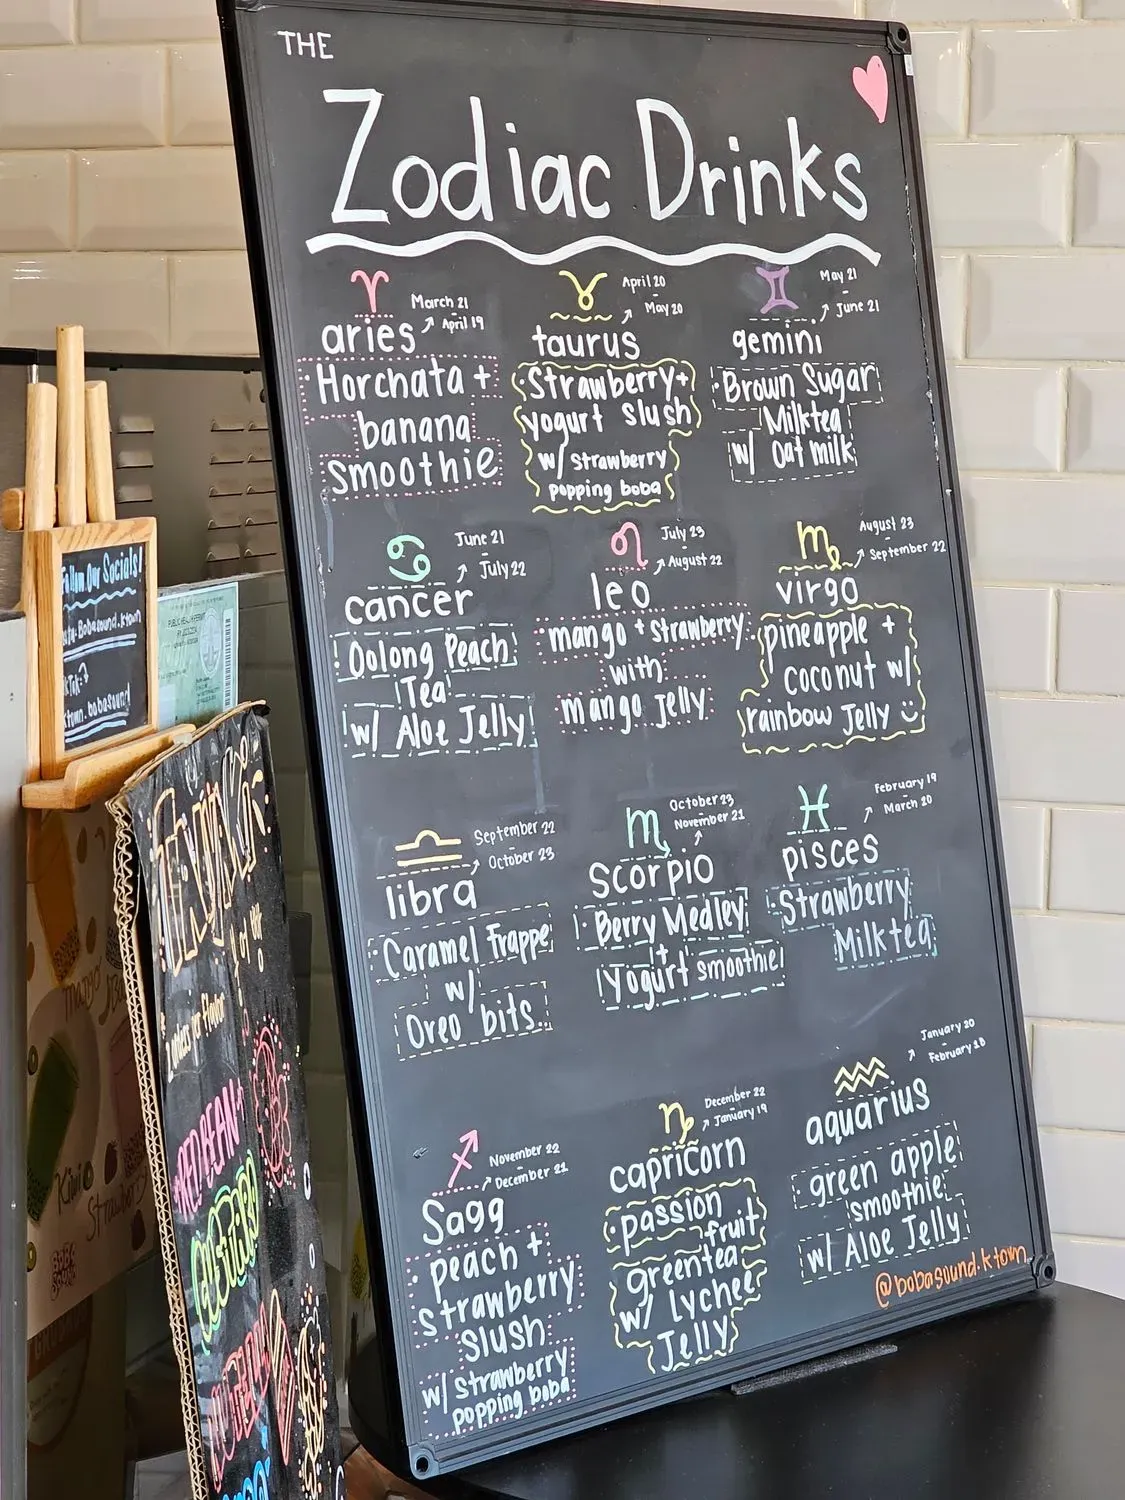 THE
Zodiac Drinks
March 21
-
April 19
aries
Horchata +
banana
smoothie
April 20
-
May 20
taurus
Strawberry+
yogurt slush
w/ strawberry
popping boba
May 21
-
June 21
gemini
Brown Sugar
Milktea
w/ Oat milk
June 21
-
July 22
cancer
Oolong Peach
Tea
w/ Aloe Jelly
July 23
-
August 22
leo
mango + strawberry
with
mango jelly
August 23
-
September 22
virgo
pineapple +
coconut w/
rainbow Jelly
September 22
-
October 23
libra
Caramel Frappe
w/
Oreo bits
October 23
-
November 21
Scorpio
Berry Medley
+
Yogurt smoothie
February 19
-
March 20
pisces
Strawberry
Milktea
November 22
-
December 21
Sagg
peach +
strawberry
slush
w/ strawberry
popping boba
December 22
-
January 19
capricorn
passion
fruit
greentea
w/ Lychee
Jelly
January 20
-
February 18
aquarius
green apple
smoothie
w/ Aloe Jelly
@bobasound.ktown
Follow Our Socials!
Bobasound.ktown
ktown.bobasound
PUBLIC HEALTH PERMIT
RED BEAN
mango
Kiwi
Strawberry
BOBA
SOUND